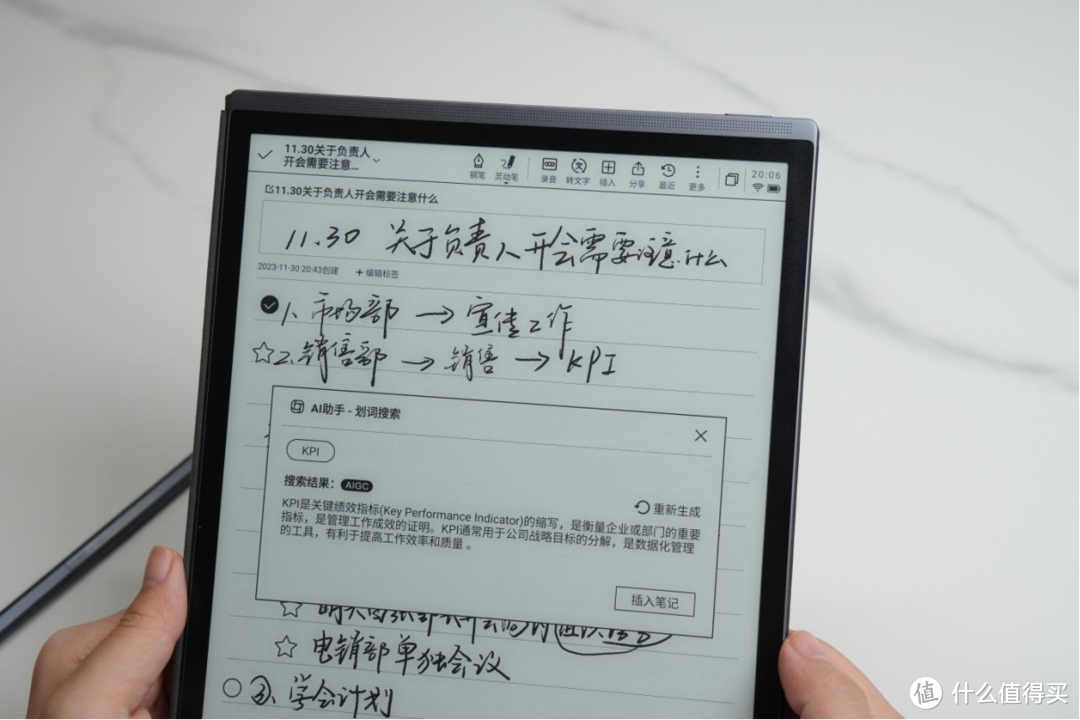 11.30关于负责人
开会需要注意...
钢笔 灵动笔 录音 转文字 插入 分享 最近 更多
20:06
11.30关于负责人开会需要注意什么
11.30 关于负责人开会需要注意什么
2023-11-30 20:43创建 +编辑标签
1、市场部 → 宣传工作
2、销售部 → 销售 → KPI
AI助手 - 划词搜索
KPI
搜索结果: AIGC
重新生成
KPI是关键绩效指标(Key Performance Indicator)的缩写，是衡量企业或部门的重要
指标，是管理工作成效的证明。KPI通常用于公司战略目标的分解，是数据化管理
的工具，有利于提高工作效率和质量 。
插入笔记
电销部单独会议
3、学会计划
值 什么值得买